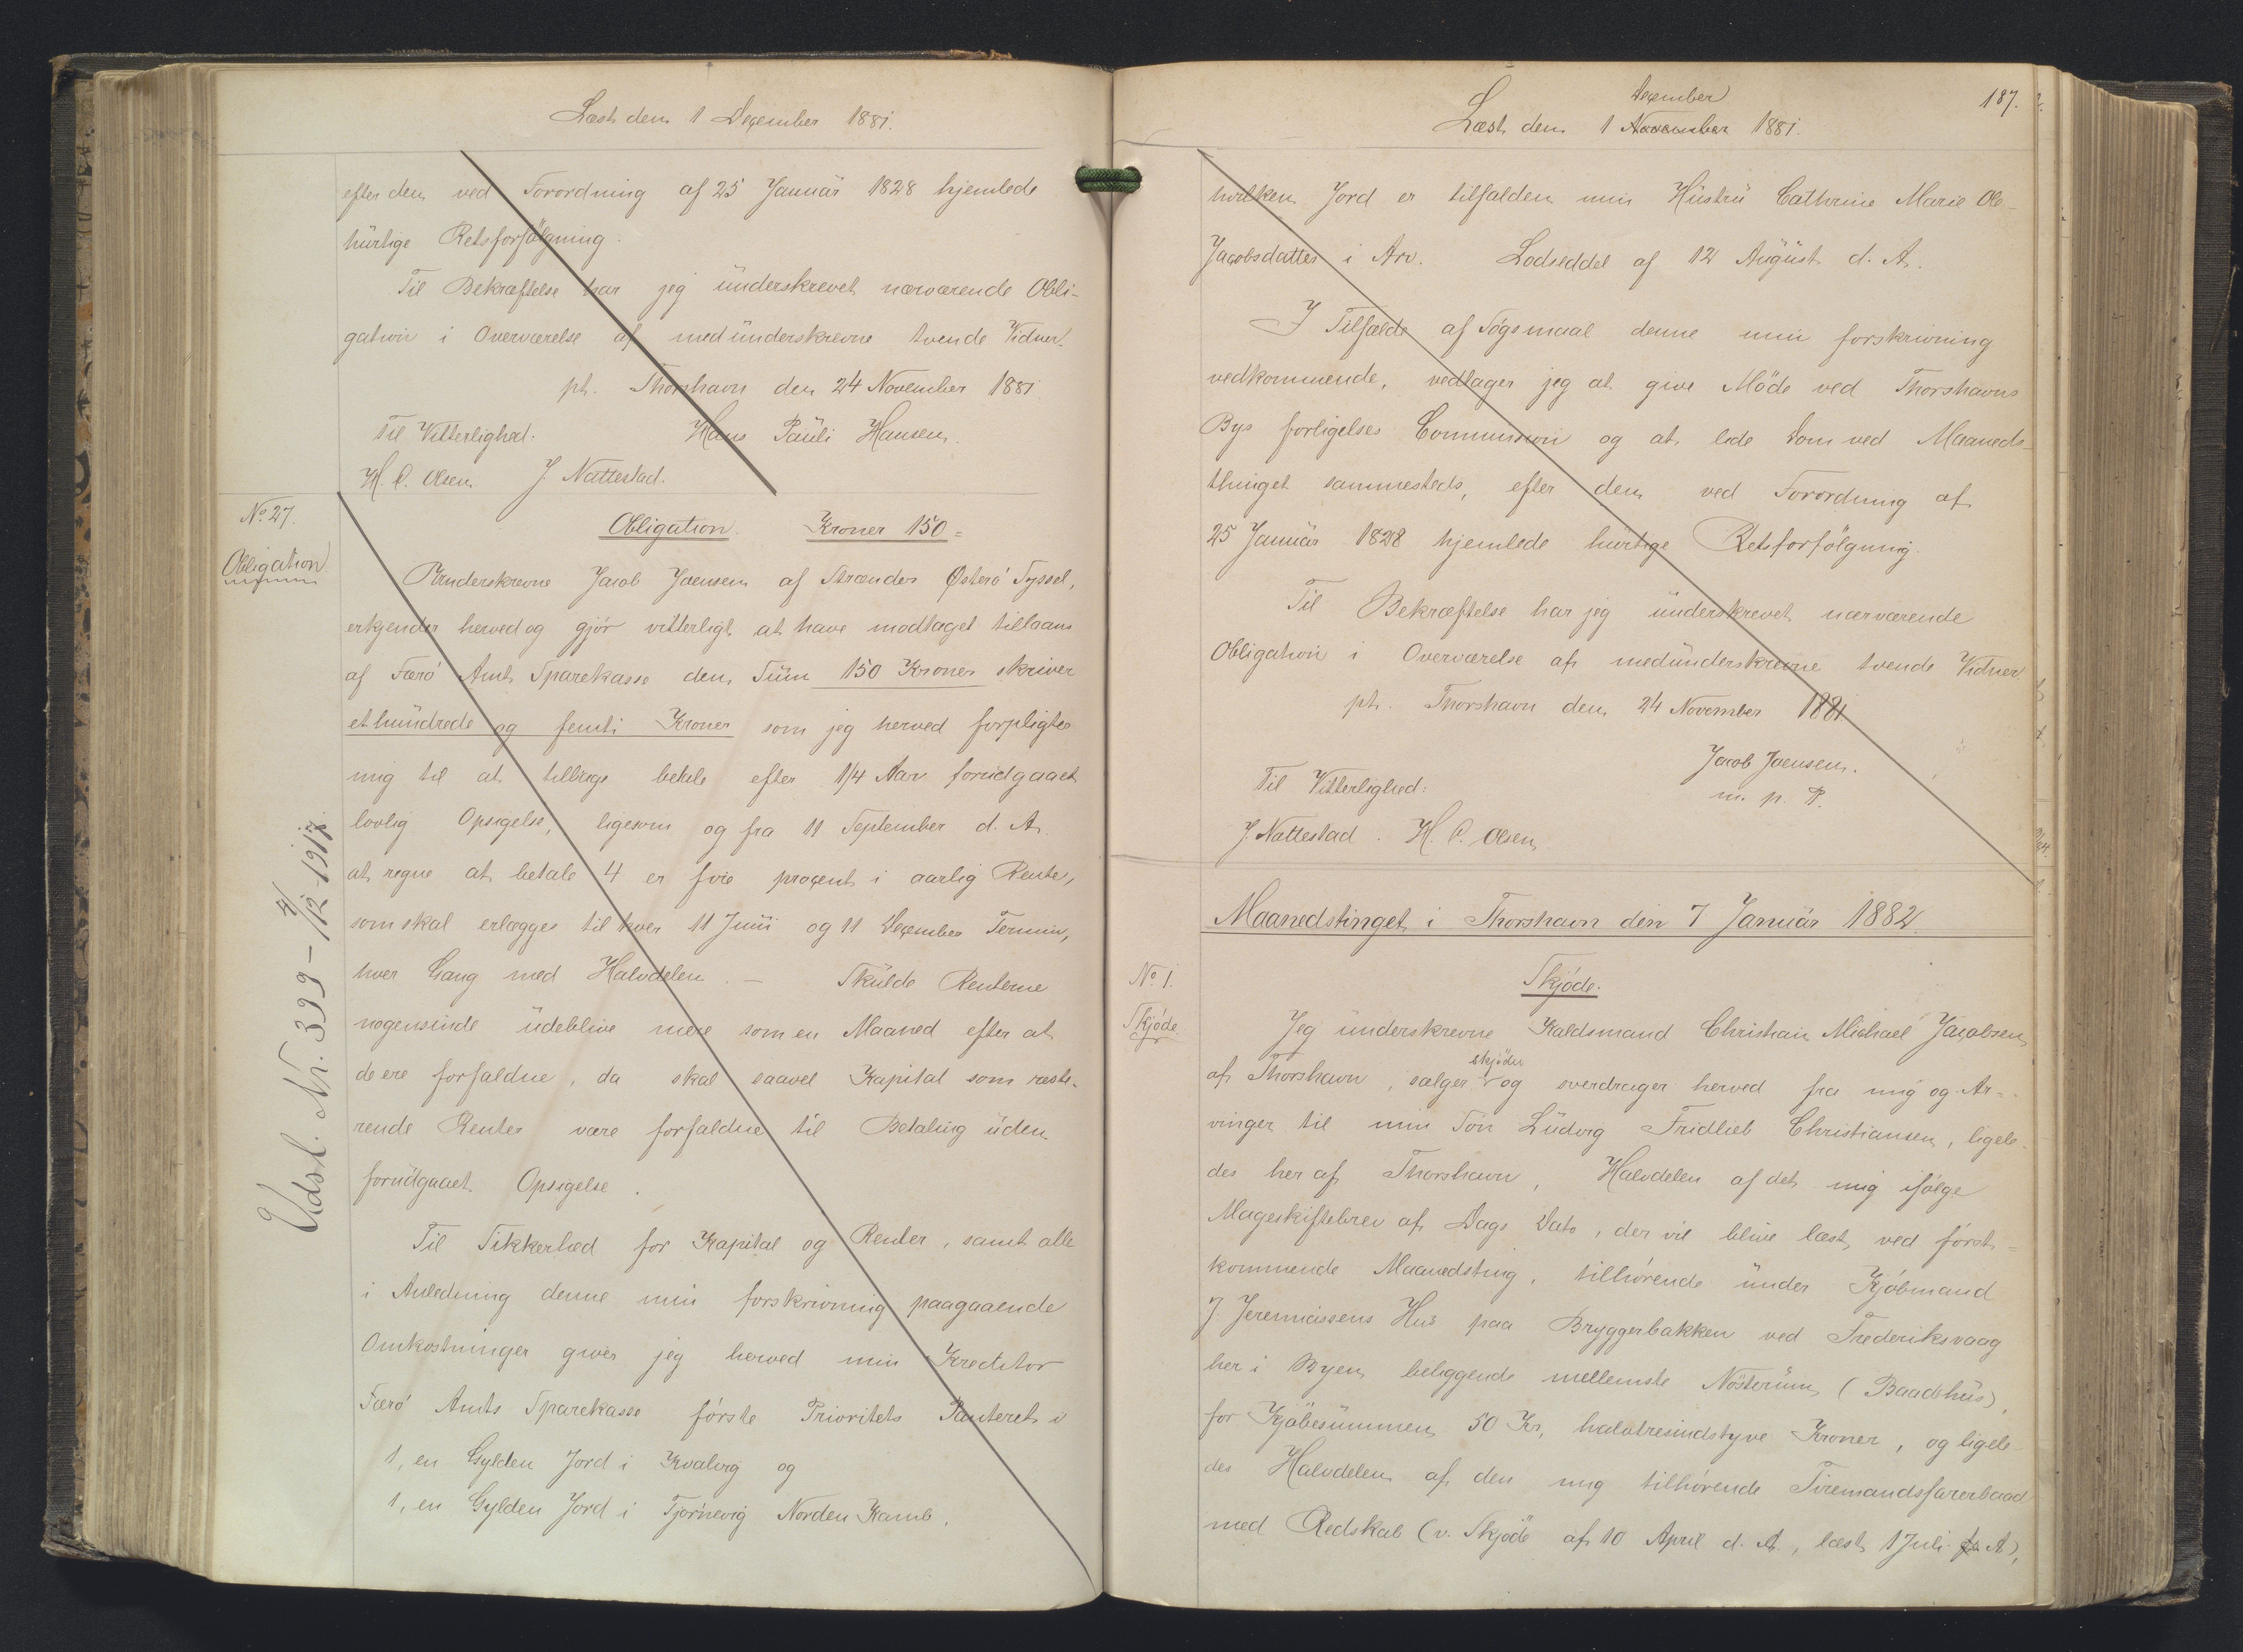 Læst den 1 December 1881.
efter den ved Forordning af 25 Januar 1828 hjemlede
hurtige Retsforfölgning.
Til Bekræftelse har jeg underskrevet nærværende Obli-
gation i Overværelse af medunderskrevne tvende Vidner.
pt. Thorshavn den 24 November 1881
Til Vitterlighed. Hans Pauli Hansen.
H. C. Olsen J. Nattestad.
No 27. Obligation. Kroner 150 =
Obligation
Underskrevne Jacob Joensen af Strænder Østerö Syssel,
erkjender herved og gjör vitterligt at have modtaget tillaans
af Færö Amts Sparekasse den Sum 150 Kroner skriver
et hundrede og femti Kroner som jeg herved forpligter
mig til at tilbage betale efter 1/4 Aar forudgaaet
lovlig Opsigelse, ligesom og fra 11 September d. A.
at regne at betale 4 er fire procent i aarlig Rente,
som skal erlægges til hver 11 Juni og 11 December Termin,
hver Gang med Halvdelen. – Skulde Renterne
nogensinde udeblive mere som en Maaned efter at
de ere forfaldne, da skal saavel Kapital som reste-
rende Renter være forfaldne til Betaling uden
forudgaaet Opsigelse.
Til Sikkerhed for Kapital og Renter, samt alle
i Anledning denne min forskrivning paagaaende
Omkostninger giver jeg herved min Kreditor
Færö Amts Sparekasse förste Prioritets Panteret i
1, en Gylden Jord i Kvalvig og
1, en Gylden Jord i Tjörnevig Norden Kamb.
Udsl. Nr. 399 – 4/12 - 1917.
December
Læst den 1 November 1881.
187.
hvilken Jord er tilfalden min Hustru Cathrine Marie Ole-
Jacobsdatter i Arv. Lodseddel af 12 August d. A.
I Tilfælde af Søgsmaal denne min forskrivning
vedkommende, vedtager jeg at give Möde ved Thorshavns
Bys forligelses Commission og at lide Dom ved Maaneds-
thinget sammesteds, efter den ved Forordning af
25 Januar 1828 hjemlede hurtige Retsforfölgning.
Til Bekræftelse har jeg underskrevet nærværende
Obligation i Overværelse af medunderskrevne tvende Vidner.
pt. Thorshavn den 24 November 1881
Jacob Joensen.
m. p. P.
Til Vitterlighed:
J. Nattestad. H. C. Olsen
Maanedstinget i Thorshavn den 7 Januar 1882.
No 1. Skjöde.
Skjöde
Jeg underskrevne Kaldsmand Christian Michael Jacobsen
skjöder
af Thorshavn, sælger og overdrager herved fra mig og Ar-
vinger til min Sön Ludvig Fridlieb Christiansen, ligele-
des her af Thorshavn, Halvdelen af det mig ifölge
Mageskiftebrev af Dags Dato, der vil blive læst ved först-
kommende Maanedsting, tilhörende under Kjöbmand
J. Jeremiassens Hus paa Bryggerbakken ved Frederiksvaag
her i Byen beliggende mellemste Nösterum (Baadehus),
for Kjöbesummen 50 Kr, halvtresindstyve Kroner, og ligele-
des Halvdelen af den mig tilhörende Firemandsfarerbaad
med Redskab (v. Skjöde af 10 April d. A., læst 1 Juli A),